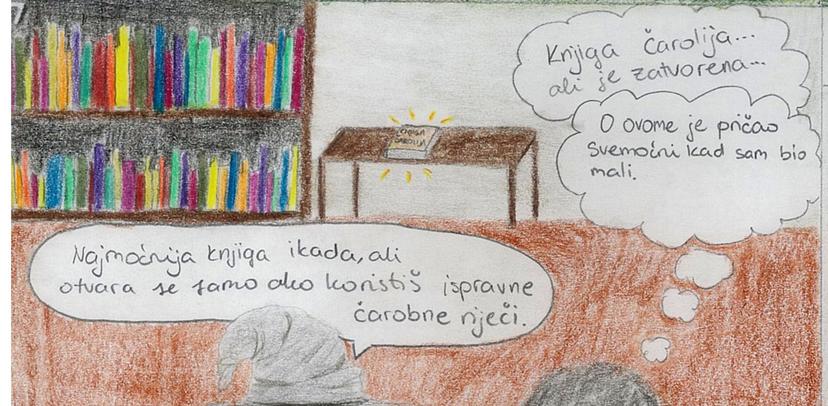 7
Knjiga čarolija...
ali je zatvorena...
O ovome je pričao
Svemoćni kad sam bio
mali.
KNJIGA
ČAROLIJA
Najmoćnija knjiga ikada, ali
otvara se samo ako koristiš ispravne
čarobne riječi.